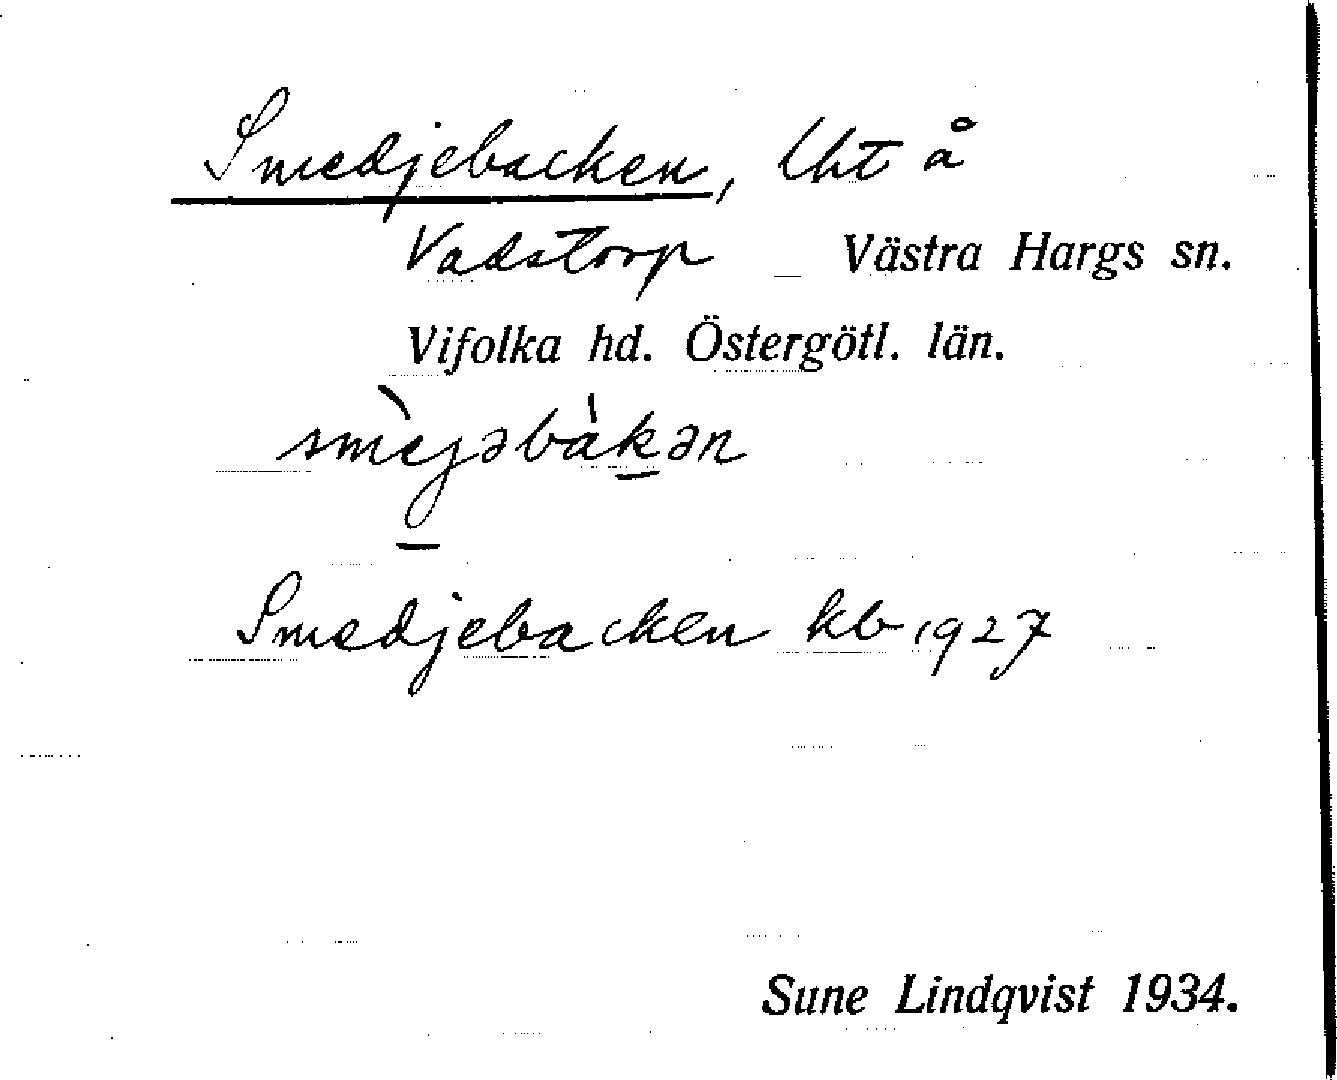 Smedjebacken, lht å
Vadstorp Västra Hargs sn.
Vifolka hd. Östergötl. län.
smèjəbàkən
Smedjebacken kb 1927
Sune Lindqvist 1934.